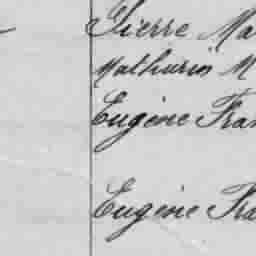 Pierre Ma
Mathurin M
Eugène Fran
Eugène Fra